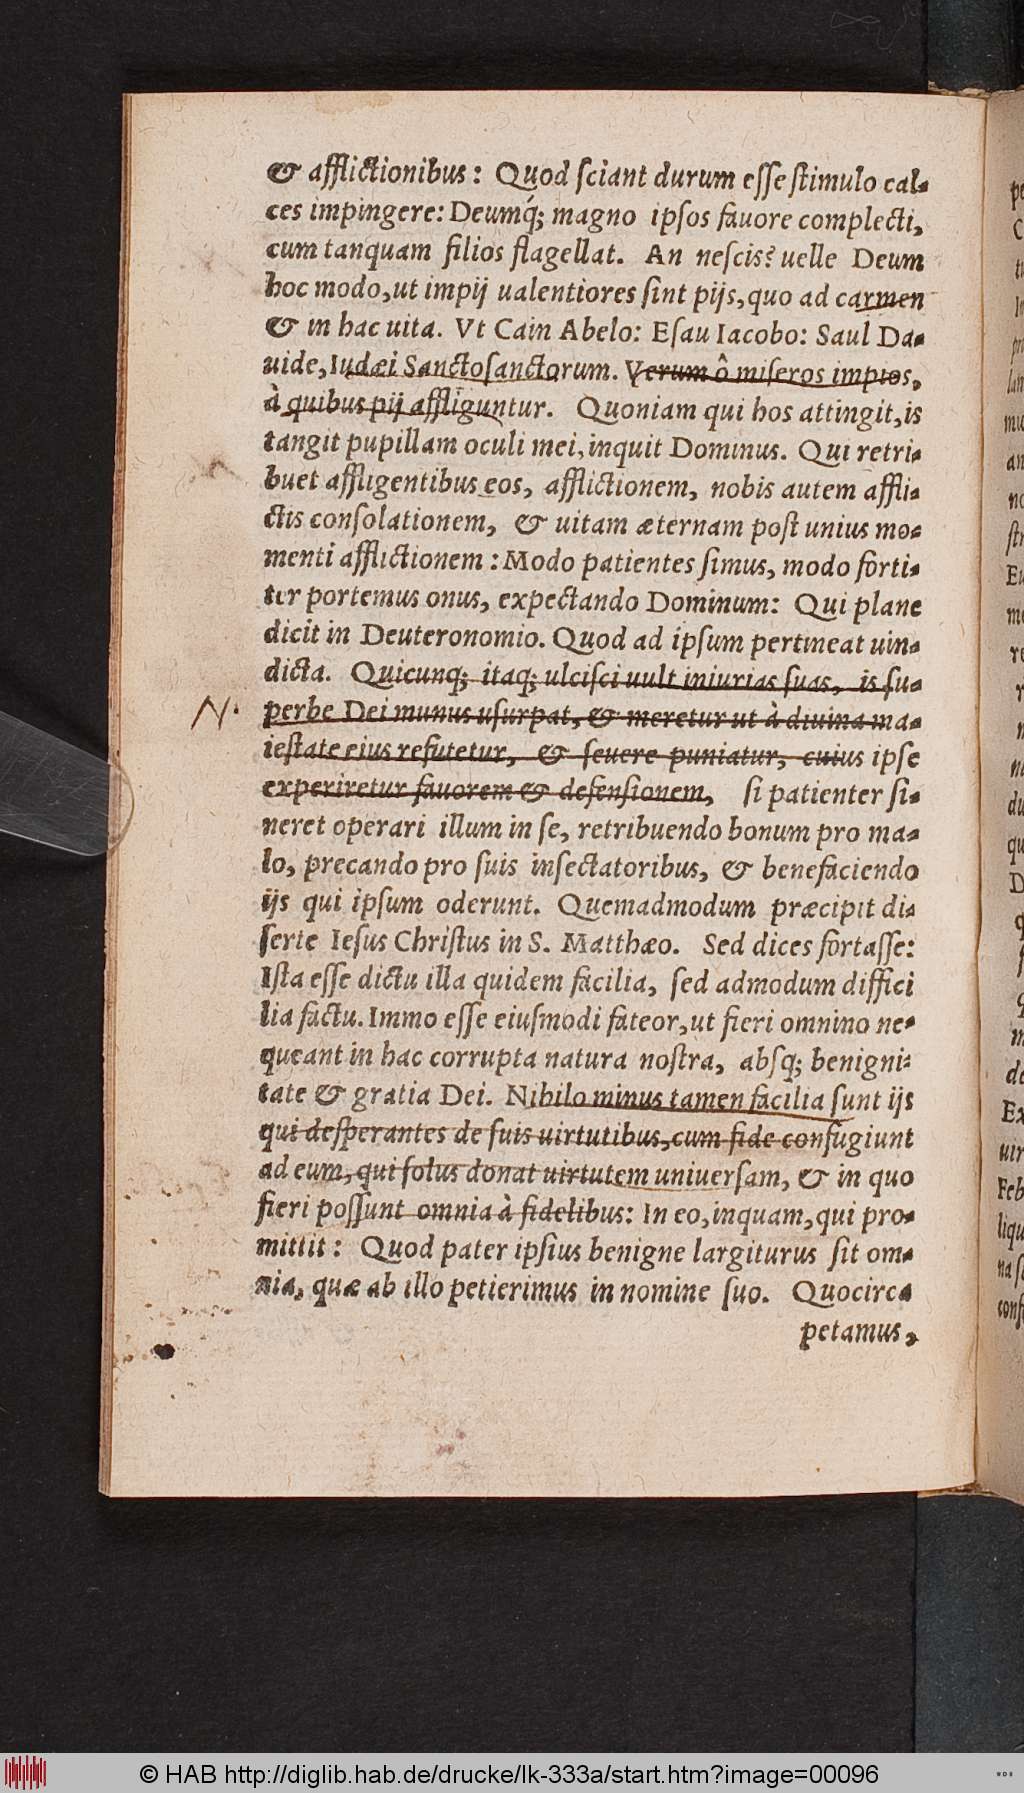 & afflictionibus: Quod sciant durum esse stimulo cal-
ces impingere: Deumq́; magno ipsos fauore complecti,
cum tanquam filios flagellat. An nescis? uelle Deum
hoc modo, ut impij ualentiores sint pijs, quo ad carmen
& in hac uita. Vt Cain Abelo: Esau Iacobo: Saul Da-
uide, Iudæi Sanctosanctorum. Verum ô miseros impios,
à quibus pij affliguntur. Quoniam qui hos attingit, is
tangit pupillam oculi mei, inquit Dominus. Qui retri-
buet affligentibus eos, afflictionem, nobis autem affli-
ctis consolationem, & uitam æternam post unius mo-
menti afflictionem: Modo patientes simus, modo forti-
ter portemus onus, expectando Dominum: Qui plane
dicit in Deuteronomio. Quod ad ipsum pertineat uin-
dicta. Quicunq; itaq; ulcisci uult iniurias suas, is su-
N.
perbe Dei munus usurpat, & meretur ut à diuina ma-
iestate eius refutetur, & seuere puniatur, cuius ipse
experiretur fauorem & defensionem, si patienter si-
neret operari illum in se, retribuendo bonum pro ma-
lo, precando pro suis insectatoribus, & benefaciendo
ijs qui ipsum oderunt. Quemadmodum præcipit di-
serte Iesus Christus in S. Matthæo. Sed dices fortasse:
Ista esse dictu illa quidem facilia, sed admodum diffici
lia factu. Immo esse eiusmodi fateor, ut fieri omnino ne-
queant in hac corrupta natura nostra, absq; benigni-
tate & gratia Dei. Nihilo minus tamen facilia sunt ijs
qui desperantes de suis uirtutibus, cum fide confugiunt
ad eum, qui solus donat uirtutem uniuersam, & in quo
fieri possunt omnia à fidelibus: In eo, inquam, qui pro-
mittit: Quod pater ipsius benigne largiturus sit om-
nia, quæ ab illo petierimus in nomine suo. Quocirca
petamus,
© HAB http://diglib.hab.de/drucke/lk-333a/start.htm?image=00096